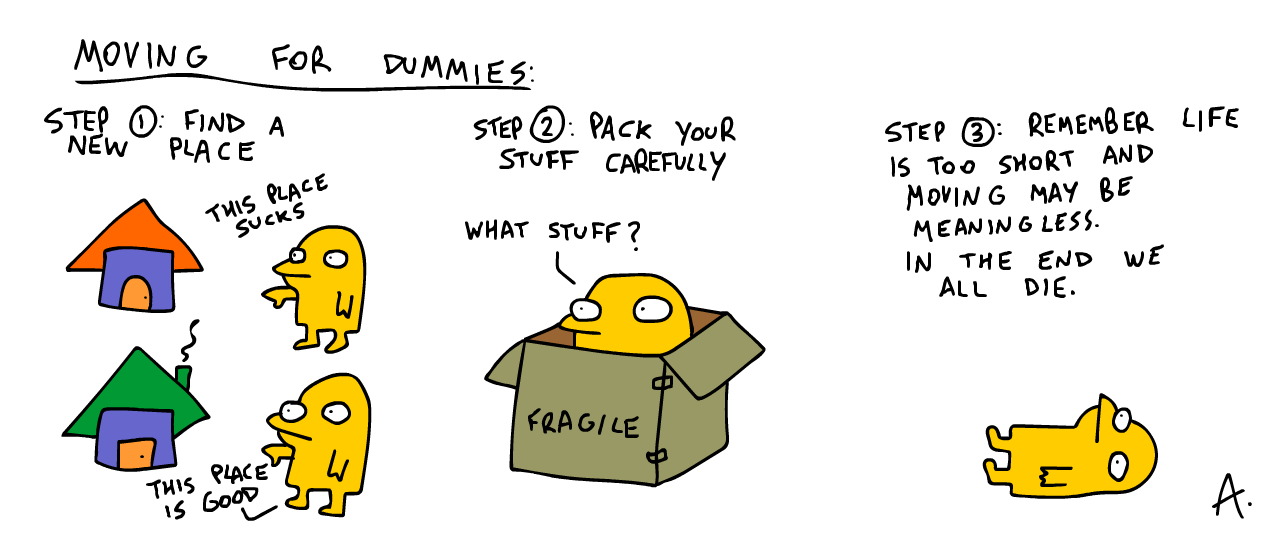 MOVING FOR DUMMIES:
STEP 1: FIND A
NEW PLACE
THIS PLACE
SUCKS
THIS PLACE
IS GOOD
STEP 2: PACK YOUR
STUFF CAREFULLY
WHAT STUFF?
FRAGILE
STEP 3: REMEMBER LIFE
IS TOO SHORT AND
MOVING MAY BE
MEANINGLESS.
IN THE END WE
ALL DIE.
A.